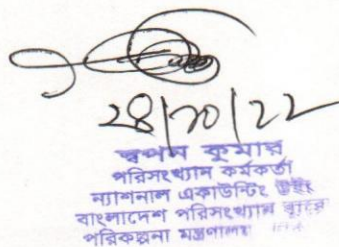 28/10/22
স্বপন কুমার
পরিসংখ্যান কর্মকর্তা
ন্যাশনাল একাউন্টিং উইং
বাংলাদেশ পরিসংখ্যান ব্যুরো
পরিকল্পনা মন্ত্রণালয়